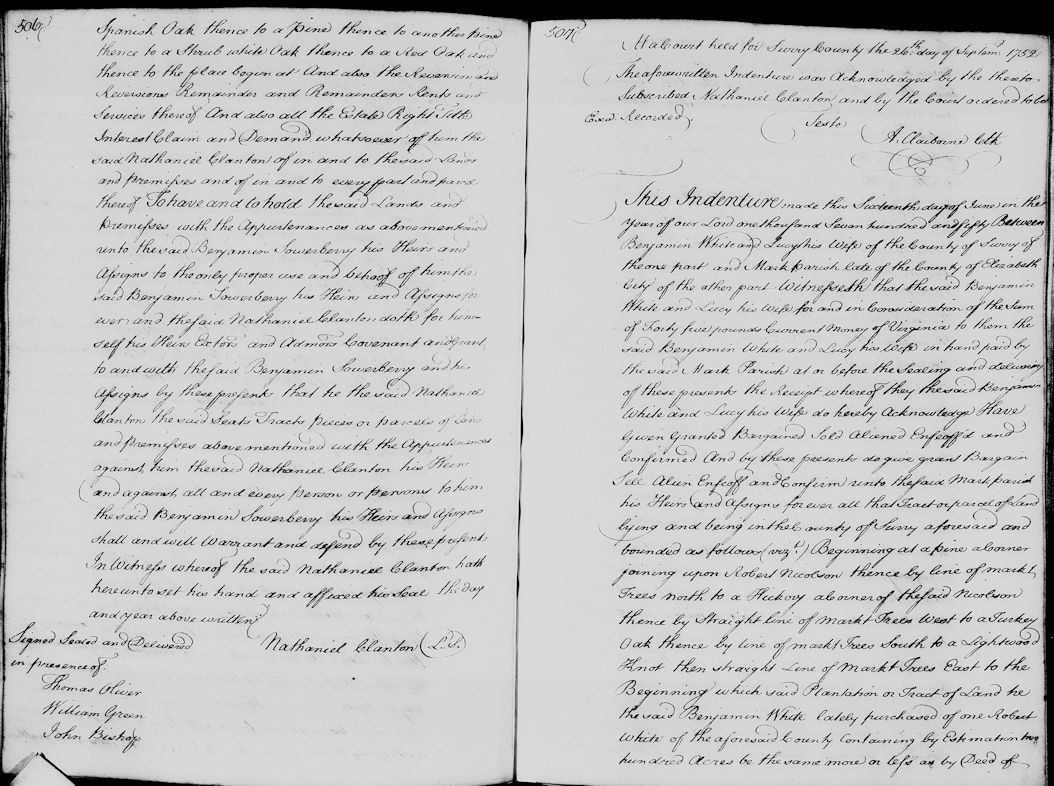 506
Spanish Oak thence to a pine thence to another pine
thence to a Shrub white Oak thence to a Red Oak and
thence to the place began at And also the Reversion and
Reversions Remainder and Remainders Rents and
Services thereof And also all the Estate Right Title
Interest Claim and Demand whatsoever of him the
said Nathaniel Clanton of in and to the said Lands
and premisses and of in and to every part and parcel
thereof To have and to hold the said Lands and
premisses with the Appurtenances as abovementioned
unto the said Benjamin Sowerberry his Heirs and
Assigns to the only proper use and behoof of him the
said Benjamin Sowerberry his Heirs and Assigns for
ever and the said Nathaniel Clanton doth for him
self his Heirs Exctors and Admors Covenant and Grant
to and with the said Benjamin Sowerberry and his
Assigns by these presents that he the said Nathaniel
Clanton the said Seats Tracts pieces or parcels of Land
and premisses abovementioned with the Appurtenances
against him the said Nathaniel Clanton his Heirs
and against all and every person or persons to him
the said Benjamin Sowerberry his Heirs and Assigns
shall and will Warrant and defend by these presents
In Witness whereof the said Nathaniel Clanton hath
hereunto set his hand and affixed his Seal the day
and year above written
Signed Sealed and Delivered Nathaniel Clanton (L.S.)
in presence of
Thomas Oliver
William Green
John Bishop
507
At a Court held for Surry County the 26th day of Septemr. 1752
The aforewritten Indenture was Acknowledged by the thereto
Subscribed Nathaniel Clanton and by the Court ordered to be
Exa.d Recorded.
Teste
A. Claiborne Clk
This Indenture made this Sixteenth day of June in the
Year of our Lord one thousand Seven hundred and fifty Between
Benjamin White and Lucy his Wife of the County of Surry of
the one part and Mark Parish late of the County of Elizabeth
City of the other part Witnesseth that the said Benjamin
White and Lucy his Wife for and in Consideration of the Sum
of Forty five pounds Current Money of Virginia to them the
said Benjamin White and Lucy his Wife in hand paid by
the said Mark Parish at or before the Sealing and delivery
of these presents the Receipt whereof they the said Benjamin
White and Lucy his Wife do hereby Acknowledge Have
Given Granted Bargained Sold Aliened Enfeoff'd and
Confirmed And by these presents do give grant Bargain
Sell Alien Enfeoff and Confirm unto the said Mark parish
his Heirs and Assigns for ever all that Tract or parcel of Land
lying and being in the County of Surry aforesaid and
bounded as follows (vizt.) Beginning at a pine a Corner
joining upon Robert Nicolson thence by line of markt
Trees north to a Hickory a Corner of the said Nicolson
thence by Straight line of Markt Trees West to a Turkey
Oak thence by line of markt Trees South to a Lightwood
Knot then straight Line of Markt Trees East to the
Beginning which said Plantation or Tract of Land he
the said Benjamin White lately purchased of one Robert
White of the aforesaid County Containing by Estimation two
hundred Acres be the same more or less as by Deed of